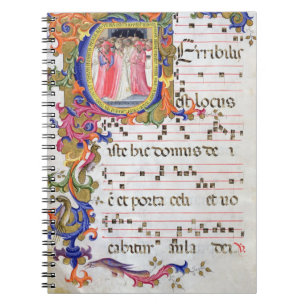 Terribilis
est locus
iste hic domus de i
ē et porta celi et uo
cabitur aula dei